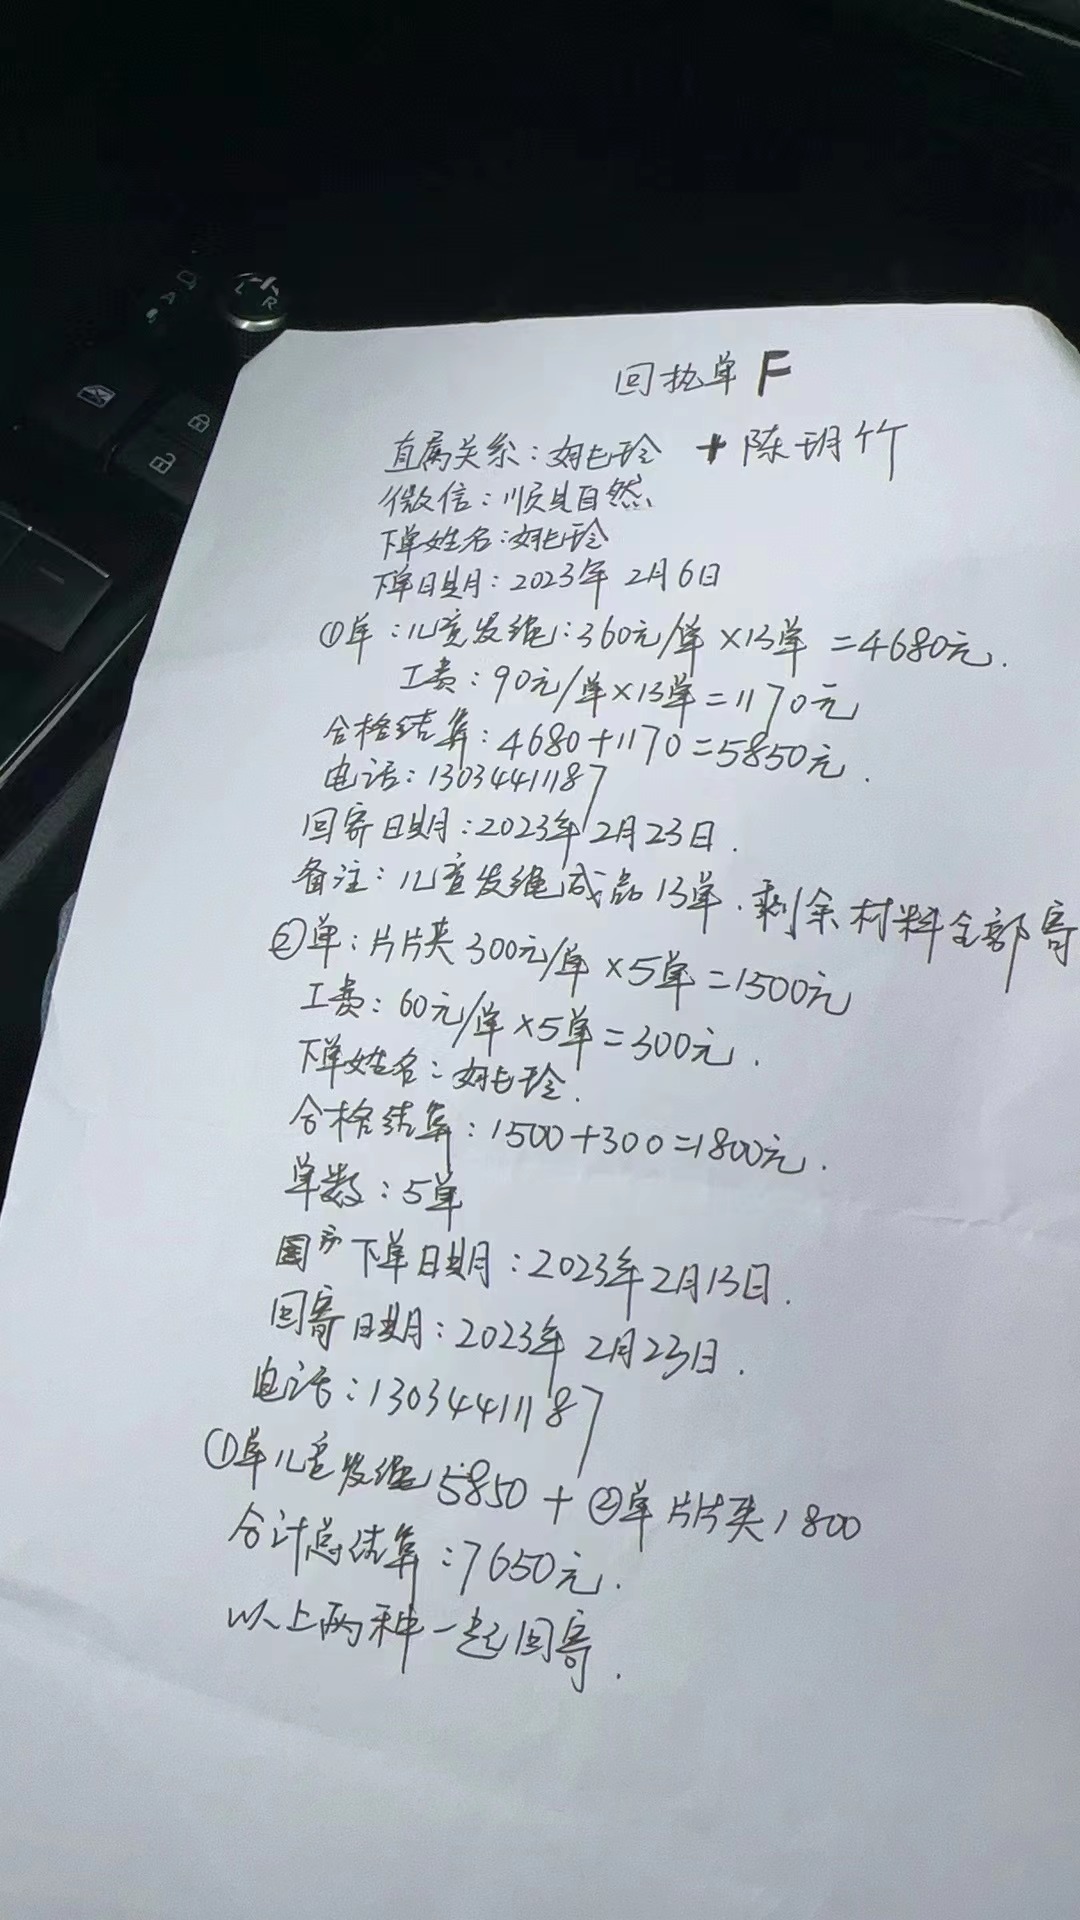 回执单 F
直属关系：姚玲 + 陈玥竹
微信：顺其自然
下单姓名：姚玲
下单日期：2023年2月6日
①单：儿童发绳：360元/单×13单=4680元.
工费：90元/单×13单=1170元
合格结算：4680+1170=5850元.
电话：13034411187
回寄日期：2023年2月23日.
备注：儿童发绳成品13单.剩余材料全部寄
②单：片片夹300元/单×5单=1500元
工费：60元/单×5单=300元.
下单姓名：姚玲.
合格结算：1500+300=1800元.
单数：5单
下单日期：2023年2月13日.
回寄日期：2023年2月23日.
电话：13034411187
①单儿童发绳5850+②单片片夹1800
合计总结算：7650元.
以上两种一起回寄.
L R
A